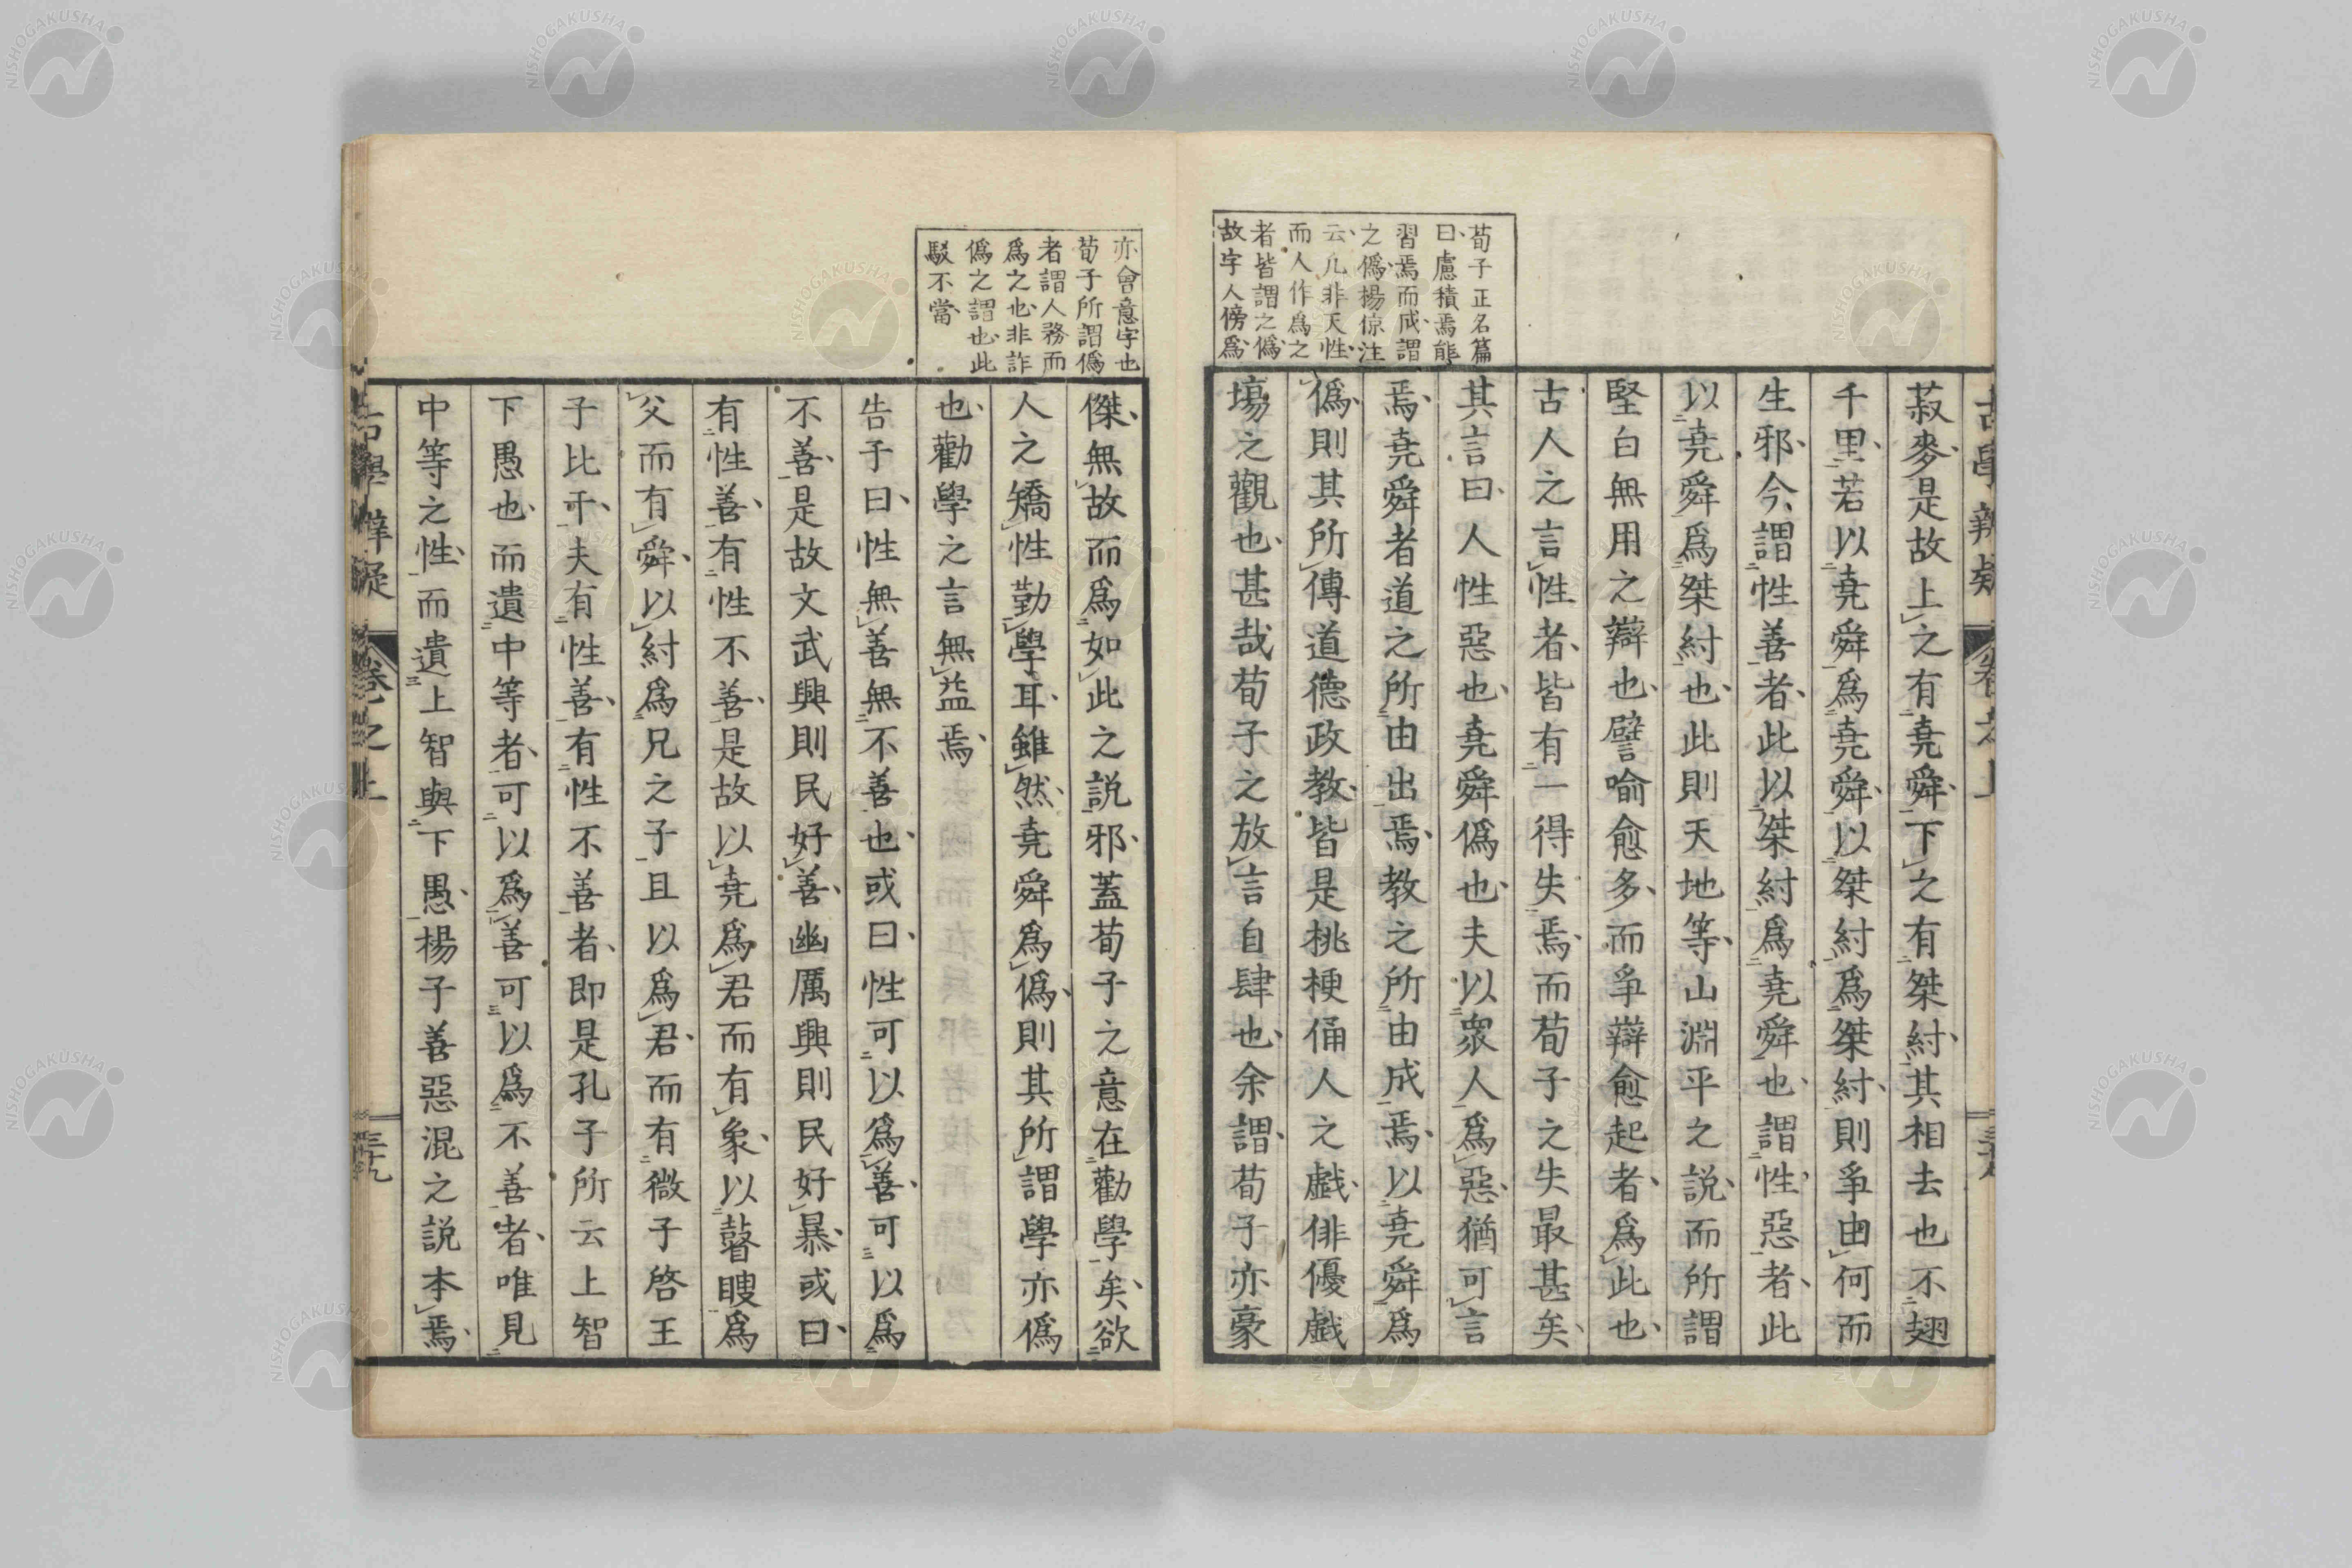 荀子正名篇
曰慮積焉能
習焉而成謂
之僞楊倞注
云凡非天性
而人作爲之
者皆謂之僞
故字人傍爲
菽麥是故上之有堯舜下之有桀紂其相去也不翅
千里若以堯舜爲堯舜以桀紂爲桀紂則爭由何而
生邪今謂性善者此以桀紂爲堯舜也謂性惡者此
以堯舜爲桀紂也此則天地等山淵平之説而所謂
堅白無用之辯也譬喻愈多而爭辯愈起者爲此也
古人之言性者皆有一得失焉而荀子之失最甚矣
其言曰人性惡也堯舜僞也夫以衆人爲惡猶可言
焉堯舜者道之所由出焉教之所由成焉以堯舜爲
僞則其所傳道德政教皆是桃梗俑人之戯俳優戯
塲之觀也甚哉荀子之放言自肆也余謂荀子亦豪
亦會意字也
荀子所謂僞
者謂人務而
爲之也非詐
僞之謂也此
駁不當
傑無故而爲如此之説邪蓋荀子之意在勸學矣欲
人之矯性勤學耳雖然堯舜爲僞則其所謂學亦僞
也勸學之言無益焉
告子曰性無善無不善也或曰性可以爲善可以爲
不善是故文武興則民好善幽厲興則民好暴或曰
有性善有性不善是故以堯爲君而有象以瞽瞍爲
父而有舜以紂爲兄之子且以爲君而有微子啓王
子比干夫有性善有性不善者即是孔子所云上智
下愚也而遺中等者可以爲善可以爲不善者唯見
中等之性而遺上智與下愚楊子善惡混之説本焉
古學辨疑 卷之上 三十九
NISHOGAKUSHA